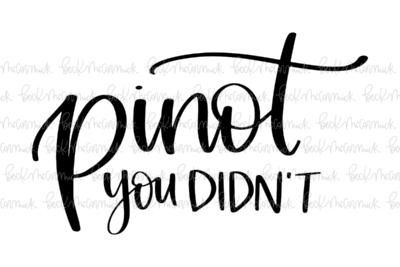 Pinot
you DIDN'T